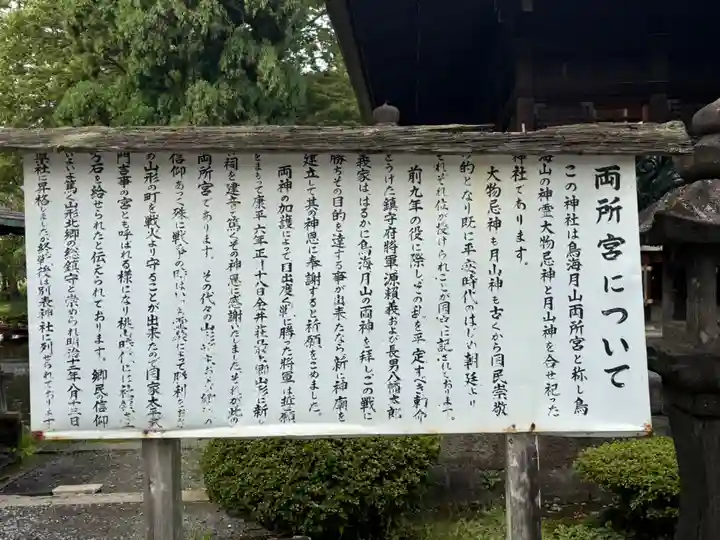 両所宮について
この神社は鳥海月山両所宮と称し鳥
海山の神霊大物忌神と月山神を合せ祀った
神社であります。
大物忌神も月山神も古くから国民崇敬
的となり既に平安時代のはじめ朝廷より
それぞれ位が授けられことが国史に記されております。
前九年の役に際しこの乱を平定すべき勅命
をうけた鎮守府将軍源頼義および長男八幡太郎
義家ははるかに鳥海月山の両神を拝しこの戦に
勝ちその目的を達する事が出来たなら新に神廟を
建立して其の神恩に奉謝すると祈願をこめました。
両神の加護によって目出度く戦に勝った将軍は
とまもって康平六年正月十八日今井荘最上郷山形に新し
祠を建立し篤くその神恩に感謝いたしましたそれが此の
両所宮であります。その代々の山形
信仰あつく殊に戦
の山形の町を戦火より守ることが出来たので国家
門吉事の宮とも呼ばれる様になり桃
万石を給せられたと伝えられております。郷民の信仰
いよいよ篤く山形北郷の総鎮守と崇められ明治十二年八月十三日
県社に昇格しました終戦後は別表神社に列せられております